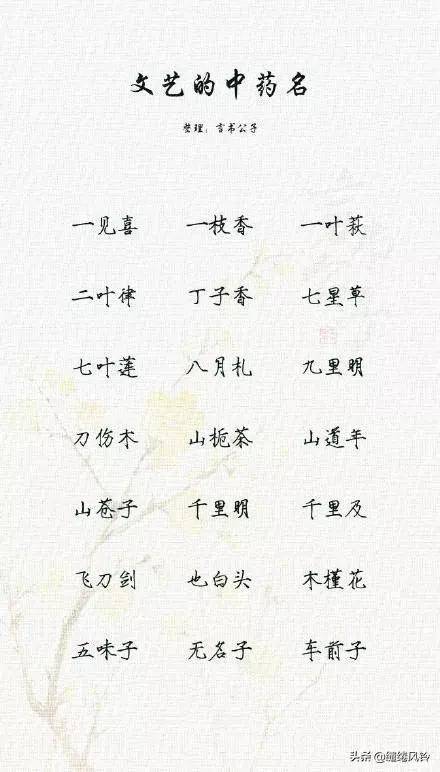 文艺的中药名
整理：言书公子
一见喜 一枝香 一叶萩
二叶律 丁子香 七星草
七叶莲 八月札 九里明
刀伤木 山扼茶 山道年
山苍子 千里明 千里及
飞刀剑 也白头 木槿花
五味子 无名子 车前子
头条 @缱绻风铃